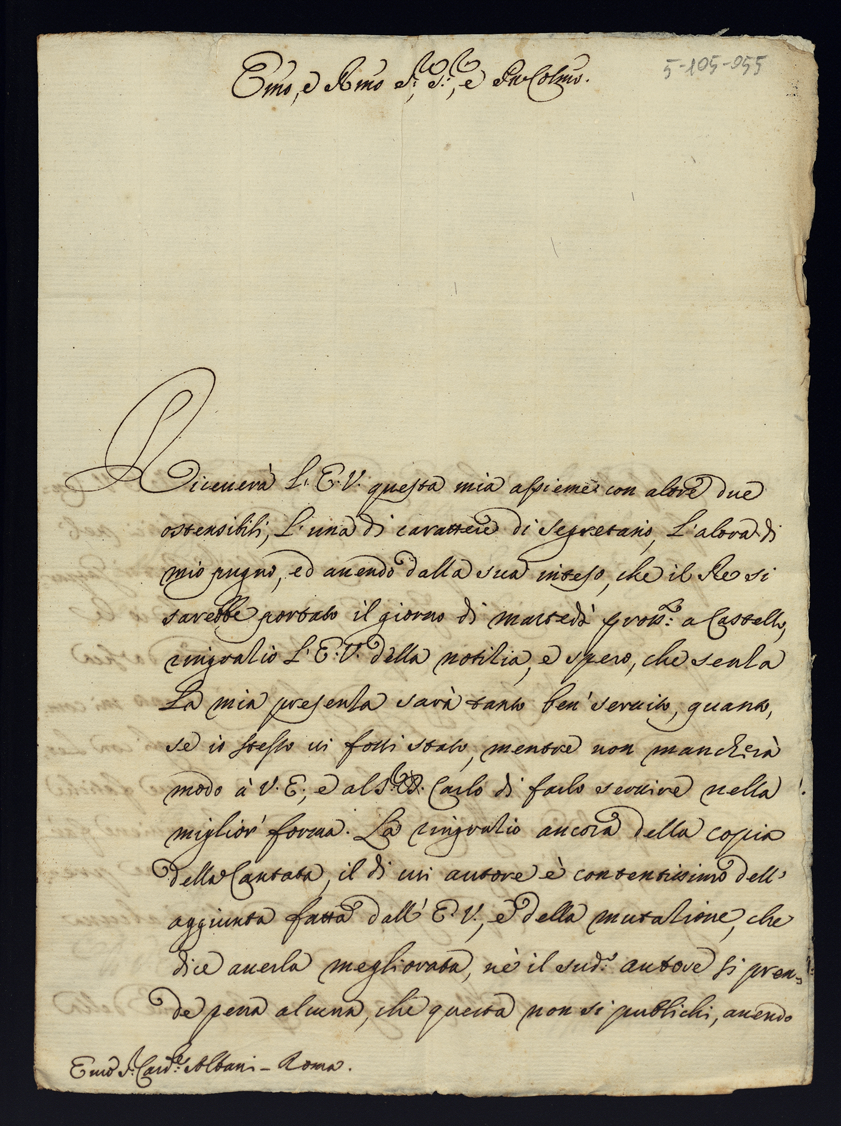 5-105-955
Emo, e Rmo Sr, Sr, e Pne Colmo.
Riceuerà L'E.V. questa mia assieme con altre due
ostensibili, L'una di carattere di Segretario, L'altra di
mio pugno, ed auendo dalla sua inteso, che il Re si
sarebbe portato il giorno di martedì pross.o a Castello,
ringratio L'E.V. della notitia, e spero, che senza
La mia presenza sarà tanto ben' seruito, quanto,
se io stesso ui fossi stato, mentre non mancherà
modo à V.E., e al Sr. D. Carlo di farlo seruire nella
miglior' forma. La ringratio ancora della copia
della Cantata, il di cui autore è contentissimo dell'
aggiunta fatta dall'E.V., e della mutazione, che
dice auerla megliorata, nè il sud.o autore si pren-
de pena alcuna, che questa non si publichi, auendo
Emo Sr. Card.e Albani - Roma.